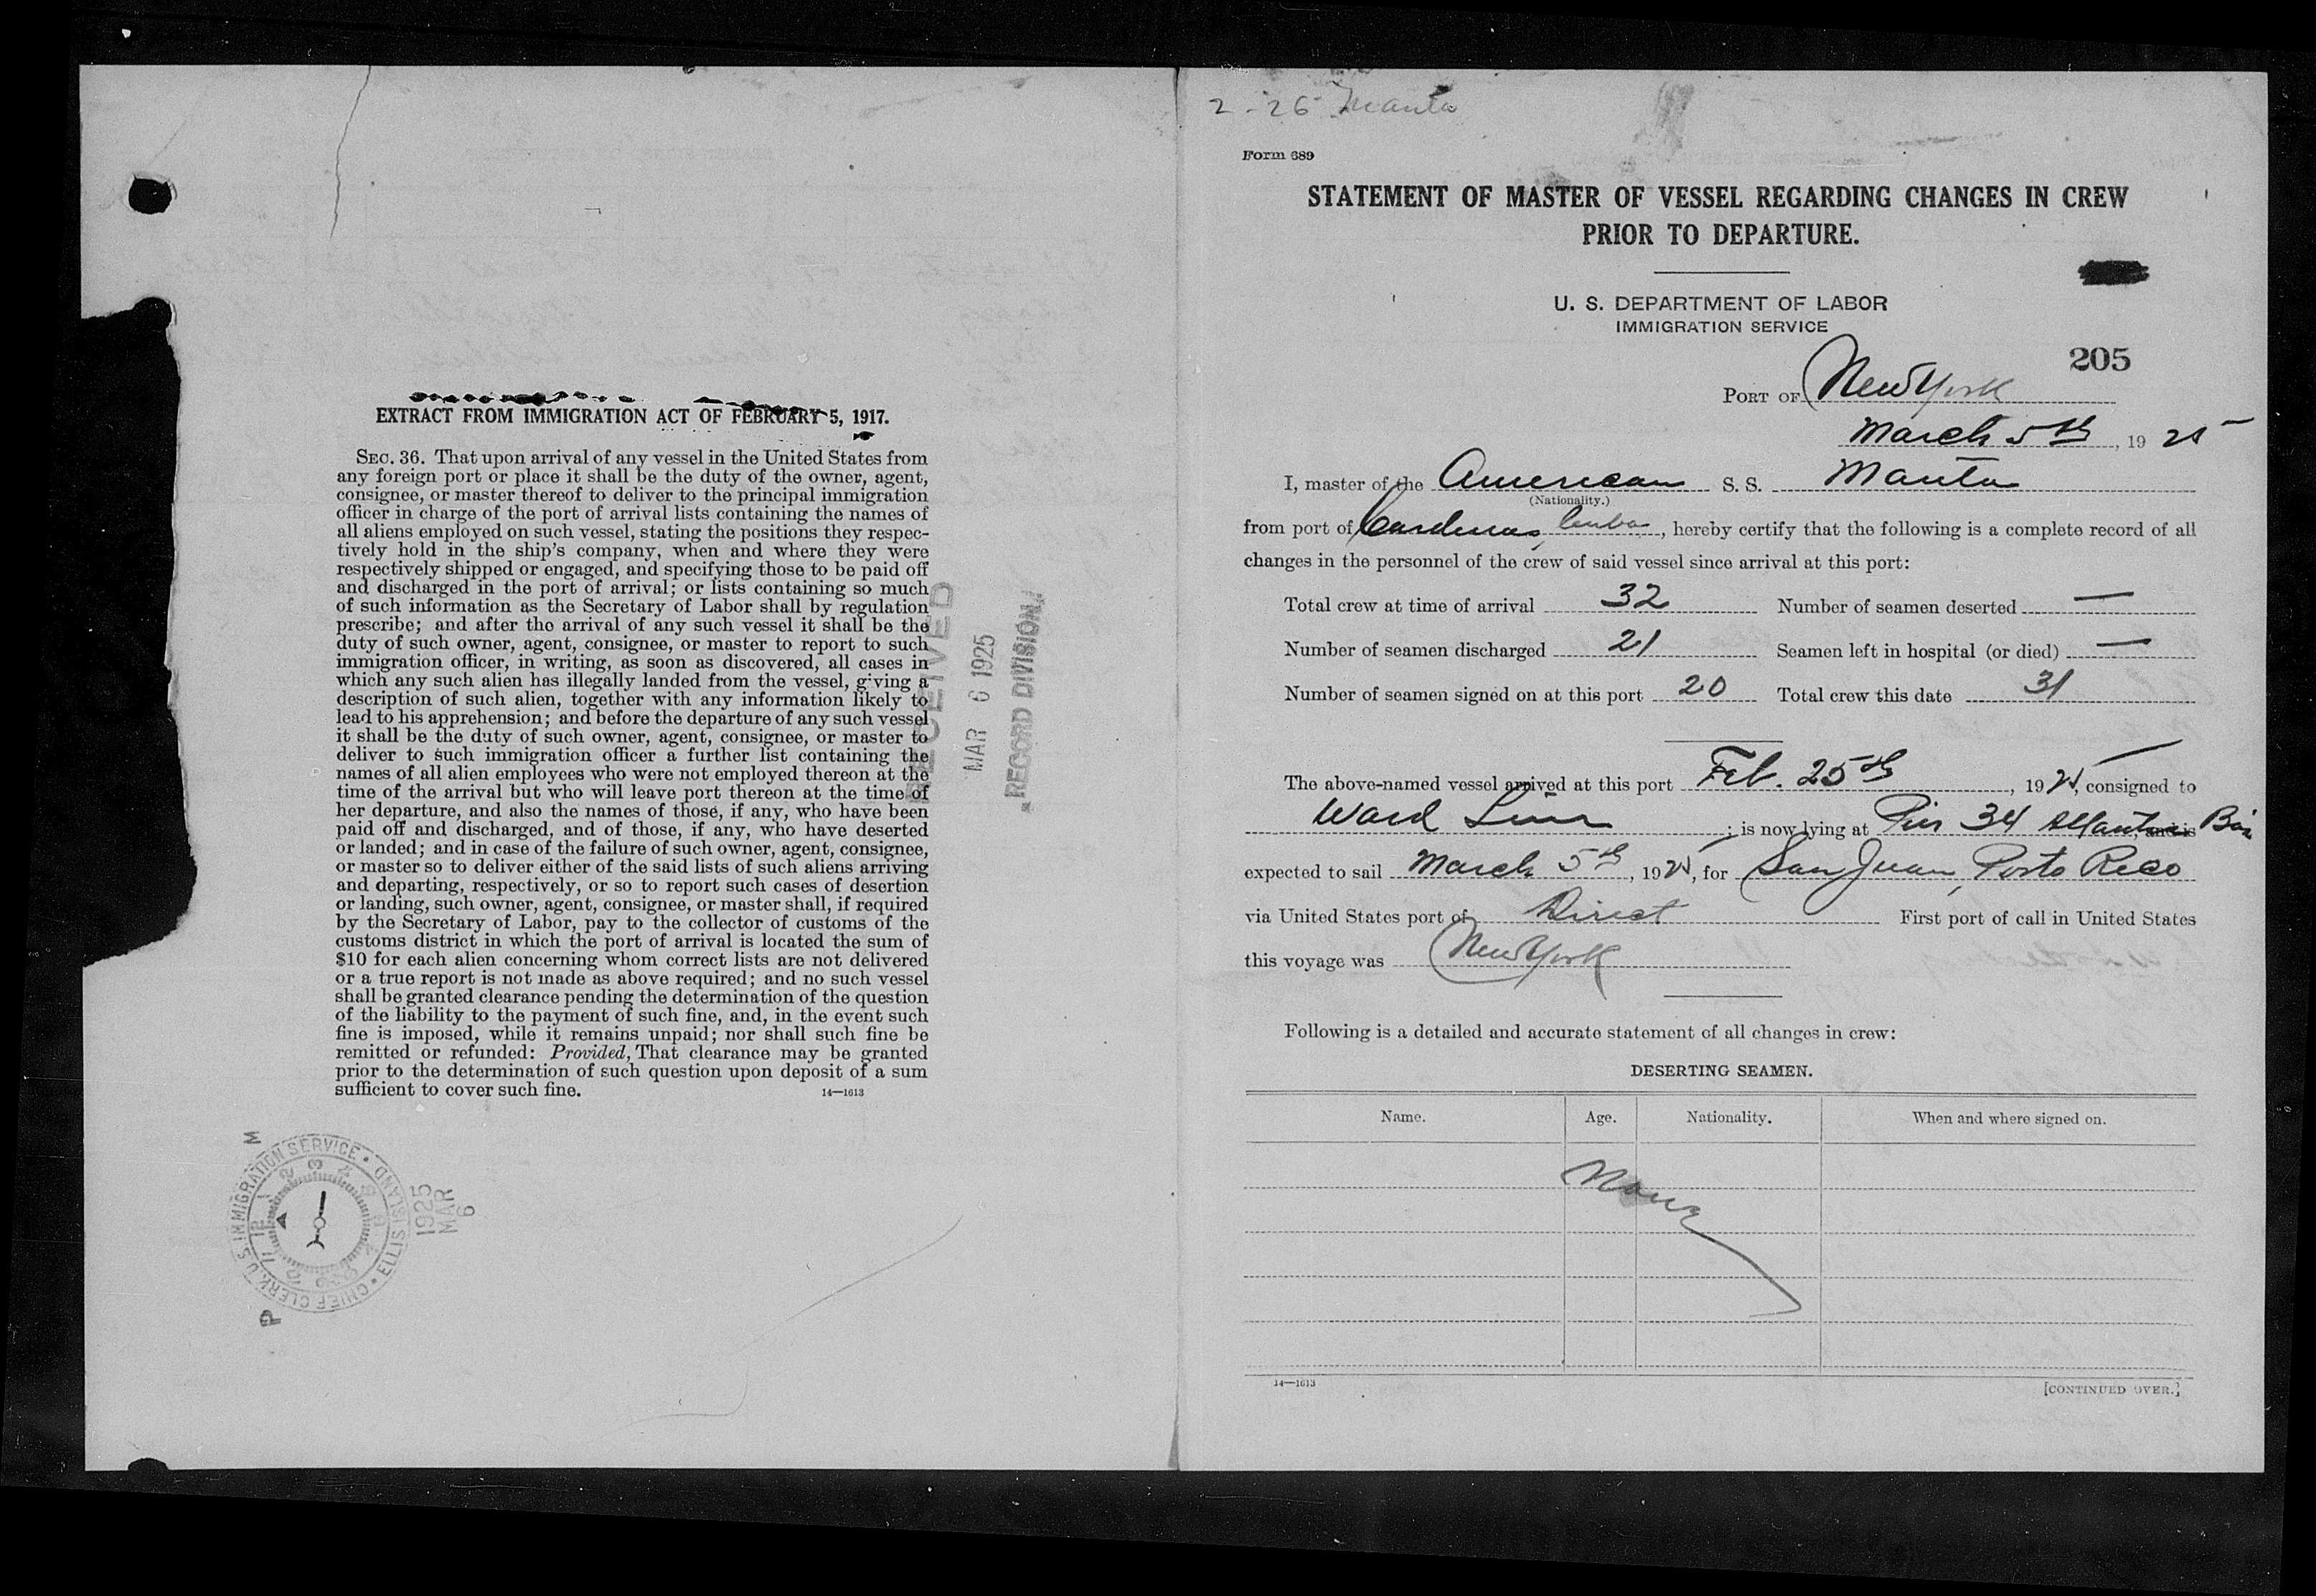 EXTRACT FROM IMMIGRATION ACT OF FEBRUARY 5, 1917.
SEC. 36. That upon arrival of any vessel in the United States from
any foreign port or place it shall be the duty of the owner, agent,
consignee, or master thereof to deliver to the principal immigration
officer in charge of the port of arrival lists containing the names of
all aliens employed on such vessel, stating the positions they respec-
tively hold in the ship's company, when and where they were
respectively shipped or engaged, and specifying those to be paid off
and discharged in the port of arrival; or lists containing so much
of such information as the Secretary of Labor shall by regulation
prescribe; and after the arrival of any such vessel it shall be the
duty of such owner, agent, consignee, or master to report to such
immigration officer, in writing, as soon as discovered, all cases in
which any such alien has illegally landed from the vessel, giving a
description of such alien, together with any information likely to
lead to his apprehension; and before the departure of any such vessel
it shall be the duty of such owner, agent, consignee, or master to
deliver to such immigration officer a further list containing the
names of all alien employees who were not employed thereon at the
time of the arrival but who will leave port thereon at the time of
her departure, and also the names of those, if any, who have been
paid off and discharged, and of those, if any, who have deserted
or landed; and in case of the failure of such owner, agent, consignee,
or master so to deliver either of the said lists of such aliens arriving
and departing, respectively, or so to report such cases of desertion
or landing, such owner, agent, consignee, or master shall, if required
by the Secretary of Labor, pay to the collector of customs of the
customs district in which the port of arrival is located the sum of
$10 for each alien concerning whom correct lists are not delivered
or a true report is not made as above required; and no such vessel
shall be granted clearance pending the determination of the question
of the liability to the payment of such fine, and, in the event such
fine is imposed, while it remains unpaid; nor shall such fine be
remitted or refunded: Provided, That clearance may be granted
prior to the determination of such question upon deposit of a sum
sufficient to cover such fine.
14—1613
RECEIVED
MAR 6 1925
RECORD DIVISION
U.S. IMMIGRATION SERVICE • ELLIS ISLAND • CHIEF CLERK
P M
1925
MAR
6
2-26 Manta
Form 689
STATEMENT OF MASTER OF VESSEL REGARDING CHANGES IN CREW
PRIOR TO DEPARTURE.
U. S. DEPARTMENT OF LABOR
IMMIGRATION SERVICE
205
PORT OF New York
March 5th, 1925
I, master of the American S. S. Manta
(Nationality.)
from port of Cardenas, Cuba, hereby certify that the following is a complete record of all
changes in the personnel of the crew of said vessel since arrival at this port:
Total crew at time of arrival 32 Number of seamen deserted —
Number of seamen discharged 21 Seamen left in hospital (or died) —
Number of seamen signed on at this port 20 Total crew this date 31
The above-named vessel arrived at this port Feb. 25th, 1925, consigned to
Ward Line; is now lying at Pier 34 Atlantic Bsn, and is
expected to sail March 5th, 1925, for San Juan, Porto Rico
via United States port of Direct First port of call in United States
this voyage was New York
Following is a detailed and accurate statement of all changes in crew:
DESERTING SEAMEN.
Name. Age. Nationality. When and where signed on.
None
14—1613
[CONTINUED OVER.]